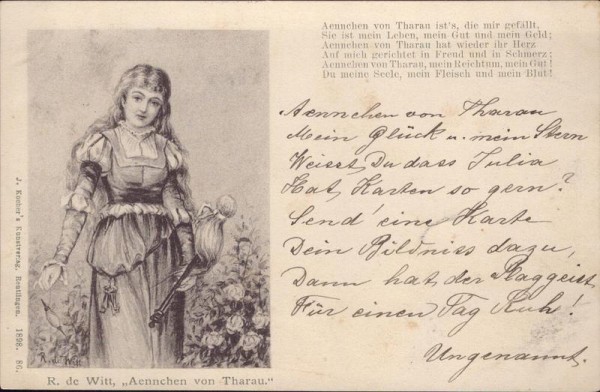 Aennchen von Tharau ist's, die mir gefällt,
Sie ist mein Leben, mein Gut und mein Geld;
Aennchen von Tharau hat wieder ihr Herz
Auf mich gerichtet in Freud und in Schmerz;
Aennchen von Tharau, mein Reichtum, mein Gut!
Du meine Seele, mein Fleisch und mein Blut!
Aennchen von Tharau
Mein Glück u. mein Stern
Weisst Du dass Julia
Hat Karten so gern?
Send' eine Karte
Dein Bildniss dazu,
Dann hat der Plaggeist
Für einen Tag Ruh!
Ungenannt.
J. Kocher's Kunstverlag, Reutlingen. 1898. 86.
R. de Witt
R. de Witt, „Aennchen von Tharau."